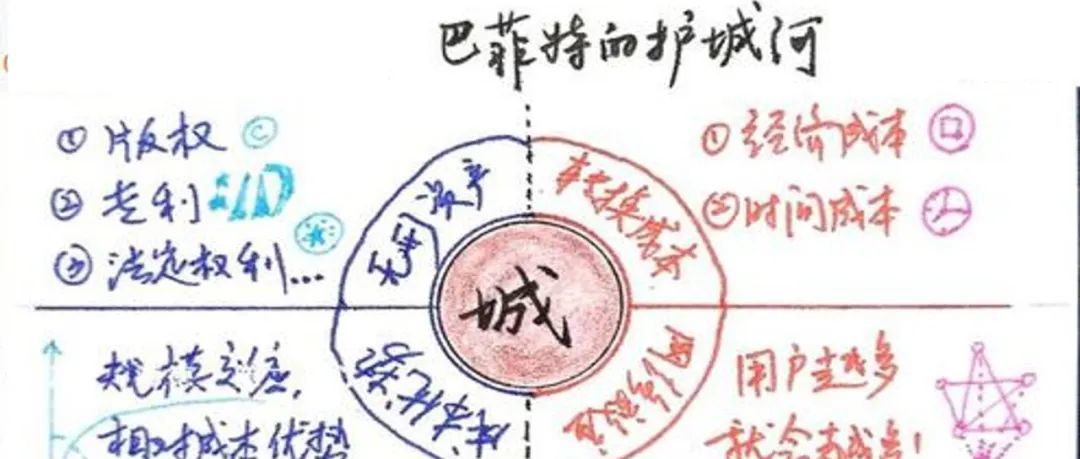 巴菲特的护城河
① 版权 ©
② 专利
③ 法定权利...
无形资产
转换成本
① 经济成本
② 时间成本
城
规模效应,
相对成本优势
成本优势
网络效应
用户越多
就会越多!